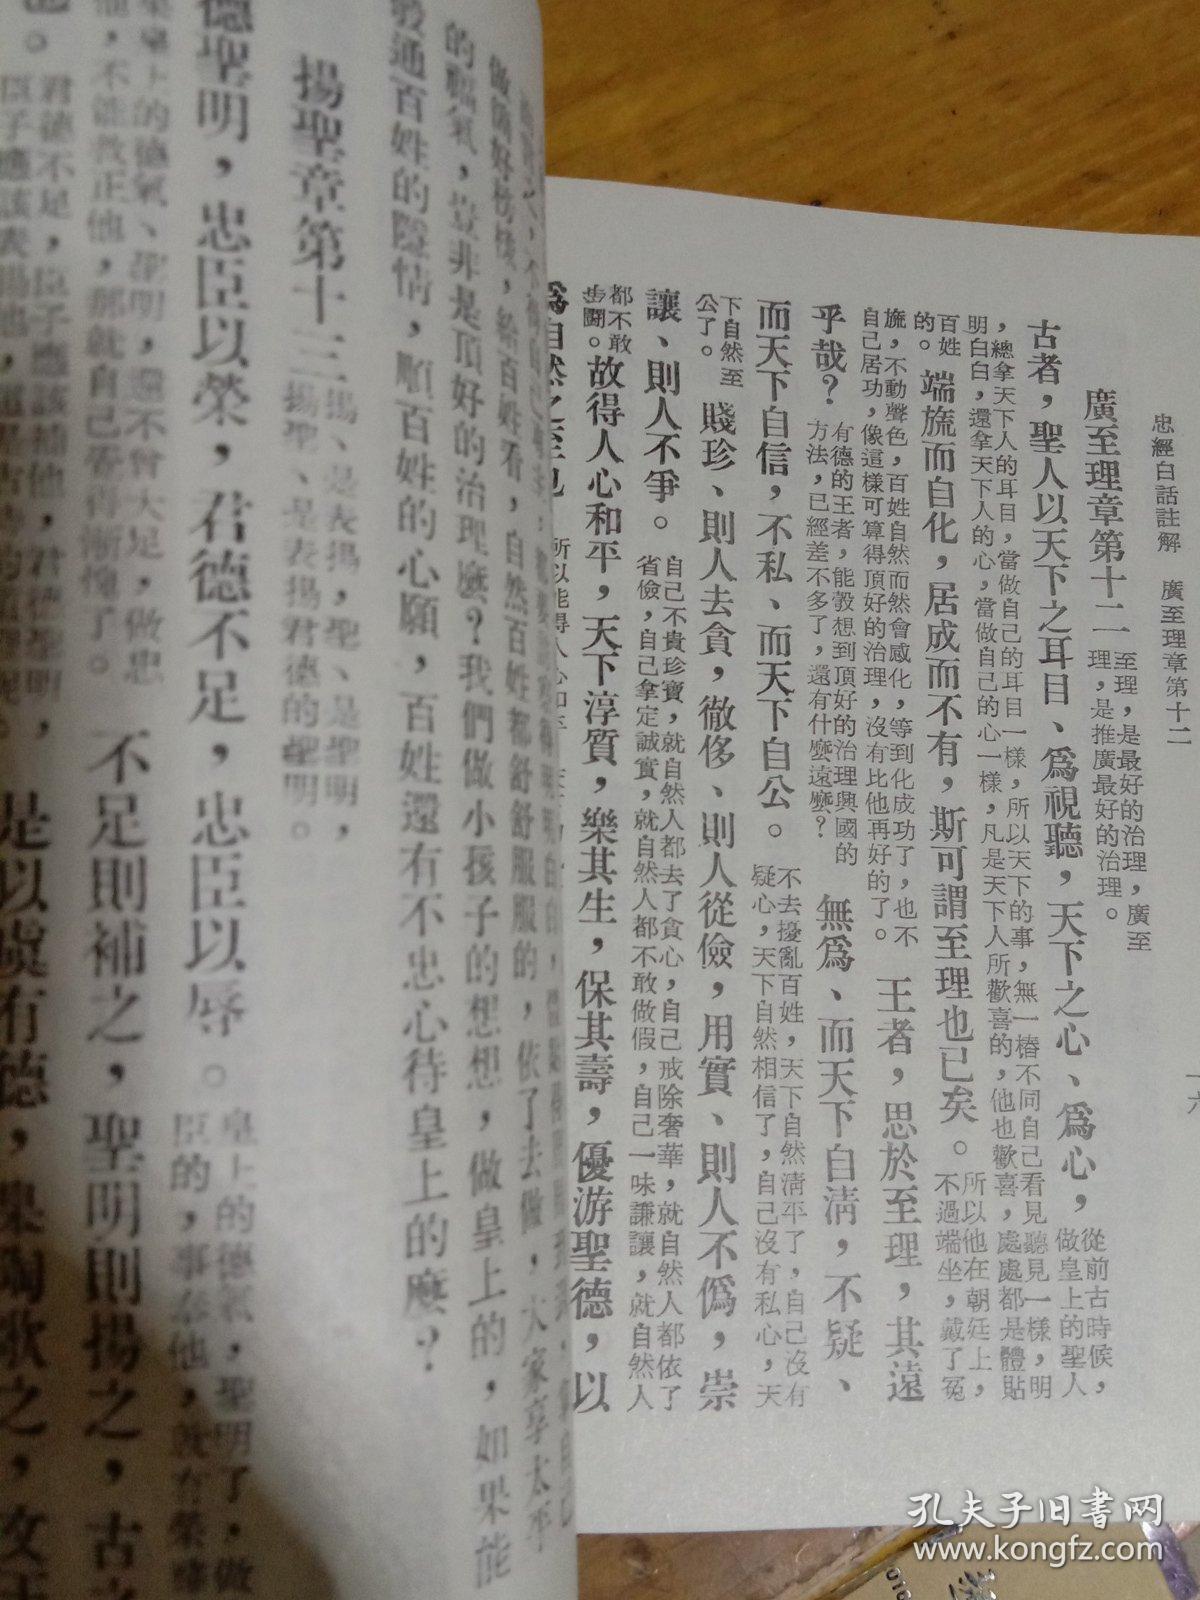 忠經白話註解　廣至理章第十二
廣至理章第十二
至理，是最好的治理，廣至
理，是推廣最好的治理。
古者，聖人以天下之耳目、爲視聽，天下之心、爲心，
從前古時候，
做皇上的聖人
，總拿天下人的耳目，當做自己的耳目一樣，所以天下的事，無一樁不同自己看見聽見一樣，明
明白白，還拿天下人的心，當做自己的心一樣，凡是天下人所歡喜的，他也歡喜，處處都是體貼
百姓
的。
端旒而自化，居成而不有，斯可謂至理也已矣。
所以他在朝廷上，
不過端坐，戴了冕
旒，不動聲色，百姓自然而然會感化，等到化成功了，也不
自己居功，像這樣可算得頂好的治理，沒有比他再好的了。
王者，思於至理，其遠
乎哉？
有德的王者，能彀想到頂好的治理興國的
方法，已經差不多了，還有什麼遠麼？
無爲、而天下自清，不疑、
而天下自信，不私、而天下自公。
不去擾亂百姓，天下自然清平了，自己沒有
疑心，天下自然相信了，自己沒有私心，天
下自然至
公了。
賤珍、則人去貪，徹侈、則人從儉，用實、則人不僞，崇
讓、則人不爭。
自己不貴珍寶，就自然人都去了貪心，自己戒除奢華，就自然人都依了
省儉，自己拿定誠實，就自然人都不敢做假，自己一味謙讓，就自然人
都不敢
爭鬬。
故得人心和平，天下淳質，樂其生，保其壽，優游聖德，以
爲自然之至也
所以能得人心和平
做個好榜樣，給百姓看，自然百姓都舒舒服服的，依了去做，大家享太平
的福氣，豈非是頂好的治理麼？我們做小孩子的想想，做皇上的，如果能
彀通百姓的隱情，順百姓的心願，百姓還有不忠心待皇上的麼？
揚聖章第十三
揚、是表揚，聖、是聖明，
揚聖、是表揚君德的聖明。
德聖明，忠臣以榮，君德不足，忠臣以辱。
皇上的德氣，聖明了，做
不足則補之，聖明則揚之，古
君德不足，臣子應該補他，君德聖明，
是以虞有德，皋陶歌之，文
孔夫子旧书网
www.kongfz.com